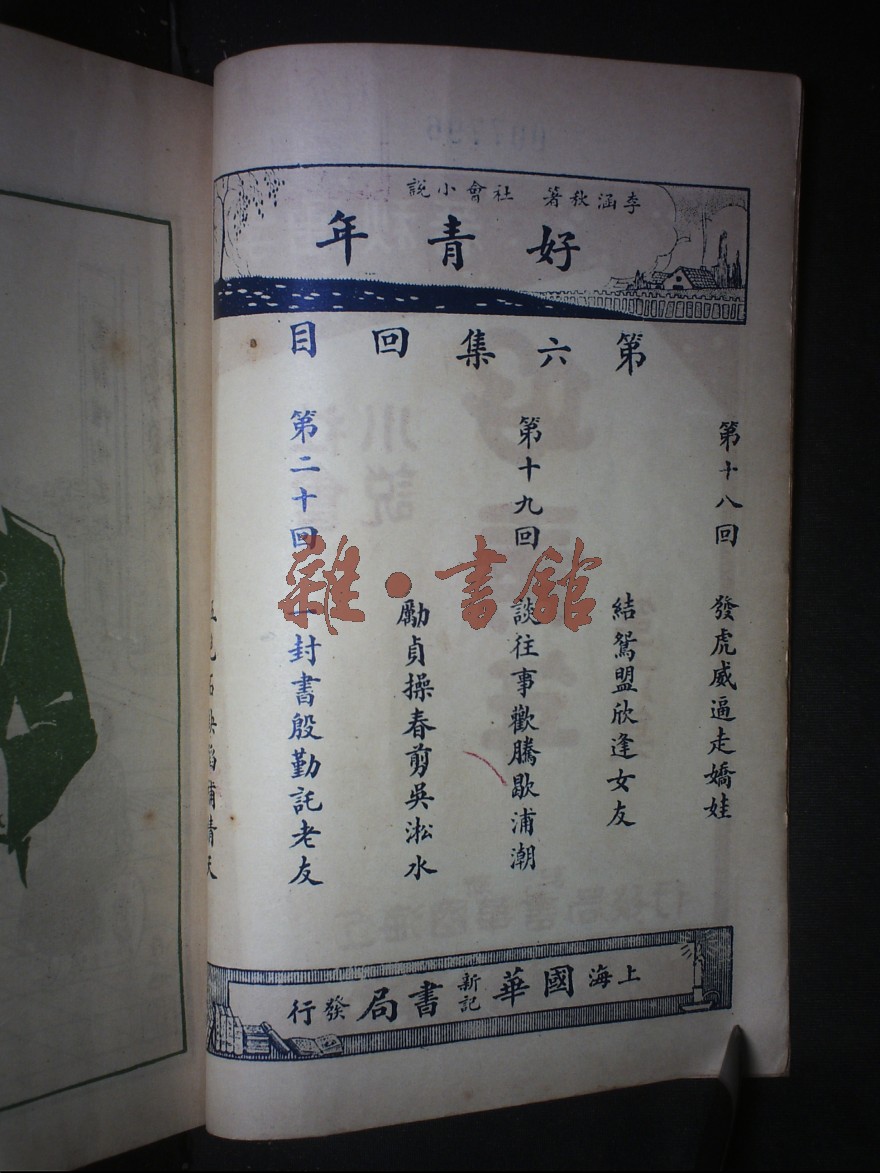 李涵秋著 社會小說
好青年
第六集回目
第十八回 發虎威逼走嬌娃
結鴛盟欣逢女友
第十九回 談往事歡騰歇浦潮
勵貞操春剪吳淞水
第二十回 一封書殷勤託老友
天
上海國華新記書局發行
雜·書館